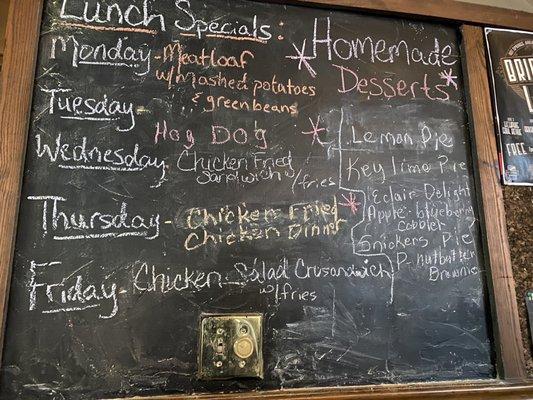 Lunch Specials:
Monday-Meatloaf
w/mashed potatoes
& greenbeans
Tuesday-
Hog Dog
Wednesday-Chicken Fried
Sandwich/fries
Thursday-Chicken Fried
Chicken Dinner
Friday-Chicken Salad Crusandwich
w/fries
Homemade
Desserts
Lemon Pie
Key lime Pie
Eclair Delight
Apple-blueberry
Cobbler
Snickers Pie
P-nutbutter
Brownie
FREE